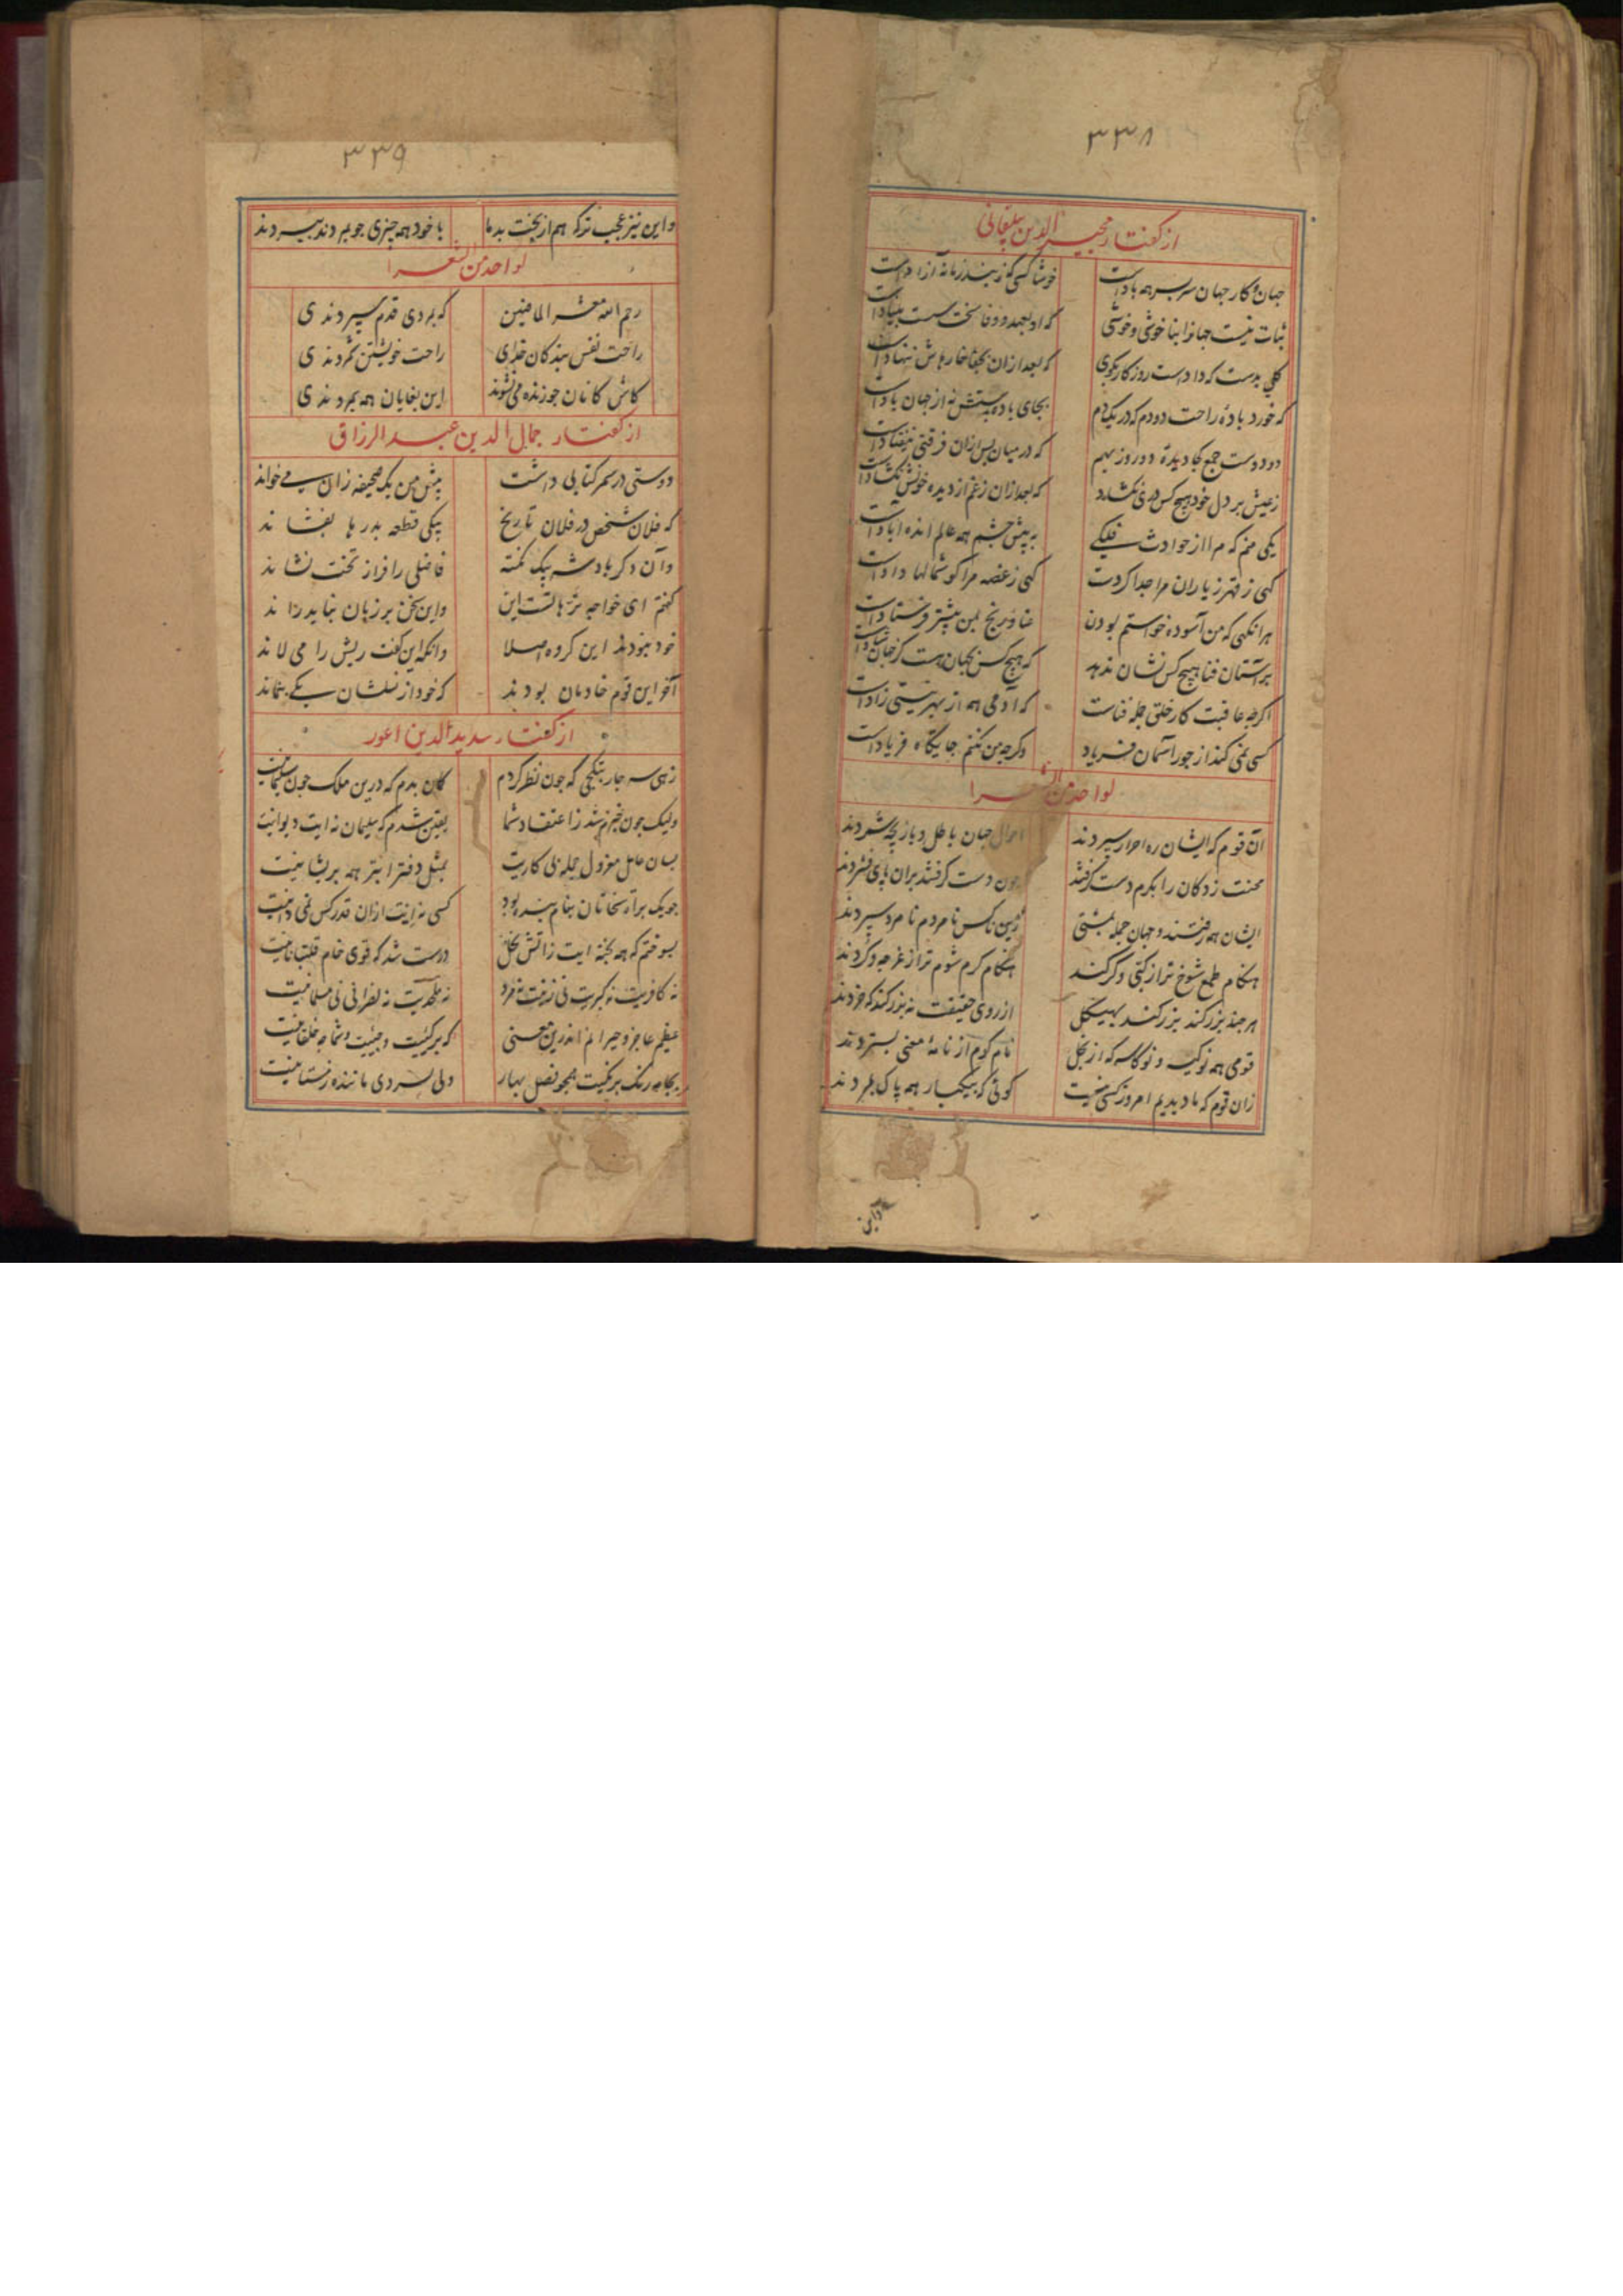 ۳۳۸
از کفتار مجیر الدین بیلقانی
جهان و کار جهان سر بسر همه بادست خوشا کسی که ز بند زمانه آزادست
ثبات نیست جهانرا بنا خوشی و خوشی که او بعهد و وفا سخت سست بنیادست
کلی بدست که دادست روزکار بکوی که بعد ازان بجفا خارهاش ننهادست
که خورد باده راحت دو دم که در یکدم بجای باده بدستش نه از جهان بادست
دو دوست جمع کجا دیده دو روز بهم که در میان پس ازان فرقتی نیفتادست
ز عیش بر دل خود هیچ کس دری نکشاد که بعد ازان ز غم از دیده خونش نکشادست
یکی منم که مرا از حوادث فلکی به پیش چشم همه عالم انده ابادست
کهی ز قهر ز یاران مرا جدا کردست کهی ز غصه مرا کوشمالها دادست
هر انکهی که من آسوده خواستم بودن عنا و رنج بمن بیشتر فرستادست
بر آستان فنا هیچ کس نشان ندهد که هیچ کس بجهان هست کز جهان شادست
اکرچه عاقبت کار خلق جمله فناست که آدمی همه از بهر نیستی زادست
کسی نمی کند از جور آسمان فریاد وکرچه من کنم جایکاه فریادست
لواحد من الشعرا
آن قوم که ایشان ره احرار سپردند احوال جهان باطل و بازیچه شمردند
محنت زدکان را بکرم دست کرفتند چون دست کرفتند بران پای فشردند
ایشان همه رفتند و جهان جمله بمشتی زین ناکس نامردم نامرد سپردند
هنکام طمع شوخ تر از کنکی و کر کند هنکام کرم شوم تر از غرچه و کردند
هر چند بزرکند بزرکند بهیکل از روی حقیقت نه بزرکند که خردند
قومی همه نو کیسه و نو کاسه که از بخل نام کرم از نامهٔ معنی بستردند
زان قوم که ما دیدیم امروز کسی نیست کوئی که بیکبار همه پاک بمردند
واین
۳۳۹
و این نیز عجب ترکه هم از بخت بد ما با خود همه چیزی جو بمردند ببردند
لواحد من الشعرا
رحم الله معشر الماضین که بمردی قدم سپردندی
راحت نفس بندکان خدای راحت خویشتن شمردندی
کاش کانان جو زنده می نشوند این بغایان همه بمردندی
از کفتار جمال الدین عبد الرزاق
دوستی در سمر کتابی داشت پیش من یک صحیفه زان می خواند
که فلان شخص در فلان تاریخ بیکی قطعه بدرها بفشاند
وآن دکر بادشه بیک نکته فاضلی را فراز تخت نشاند
کفتم ای خواجه ترهاتست این واین سخن بر زبان نباید راند
خود نبودند این کروه اصلا وانکه این کفت ریش را می لاند
آخر این قوم خادمان بودند که خود از نسلشان یکی بنماند
از کفتار سدید الدین اعور
زهی سه چار بتکجی که جون نظر کردم کمان بدم که درین ملک جون سلیمانیت
ولیک جون خبرم شد ز اعتقاد شما یقین شدم که سلیمان نه ایت دیوانیت
بسان عامل معزول جمله بی کاریت بمثل دفتر ابتر همه پریشانیت
بسوختم که همه پخته ایت زاتش بخل درست شد که قوی خام قلتبانانیت
نه کافریت نه کبریت نی زنیت نه مرد نه ملحدیت نه نصرانی نی مسلمانیت
عظیم عاجز و حیرانم اندرین معنی که بر کئیت و جئیت و شما جه خلقانیت
بجامه رنک برنکیت همجو فصل بهار ولی بسردی ماننده زمستانیت